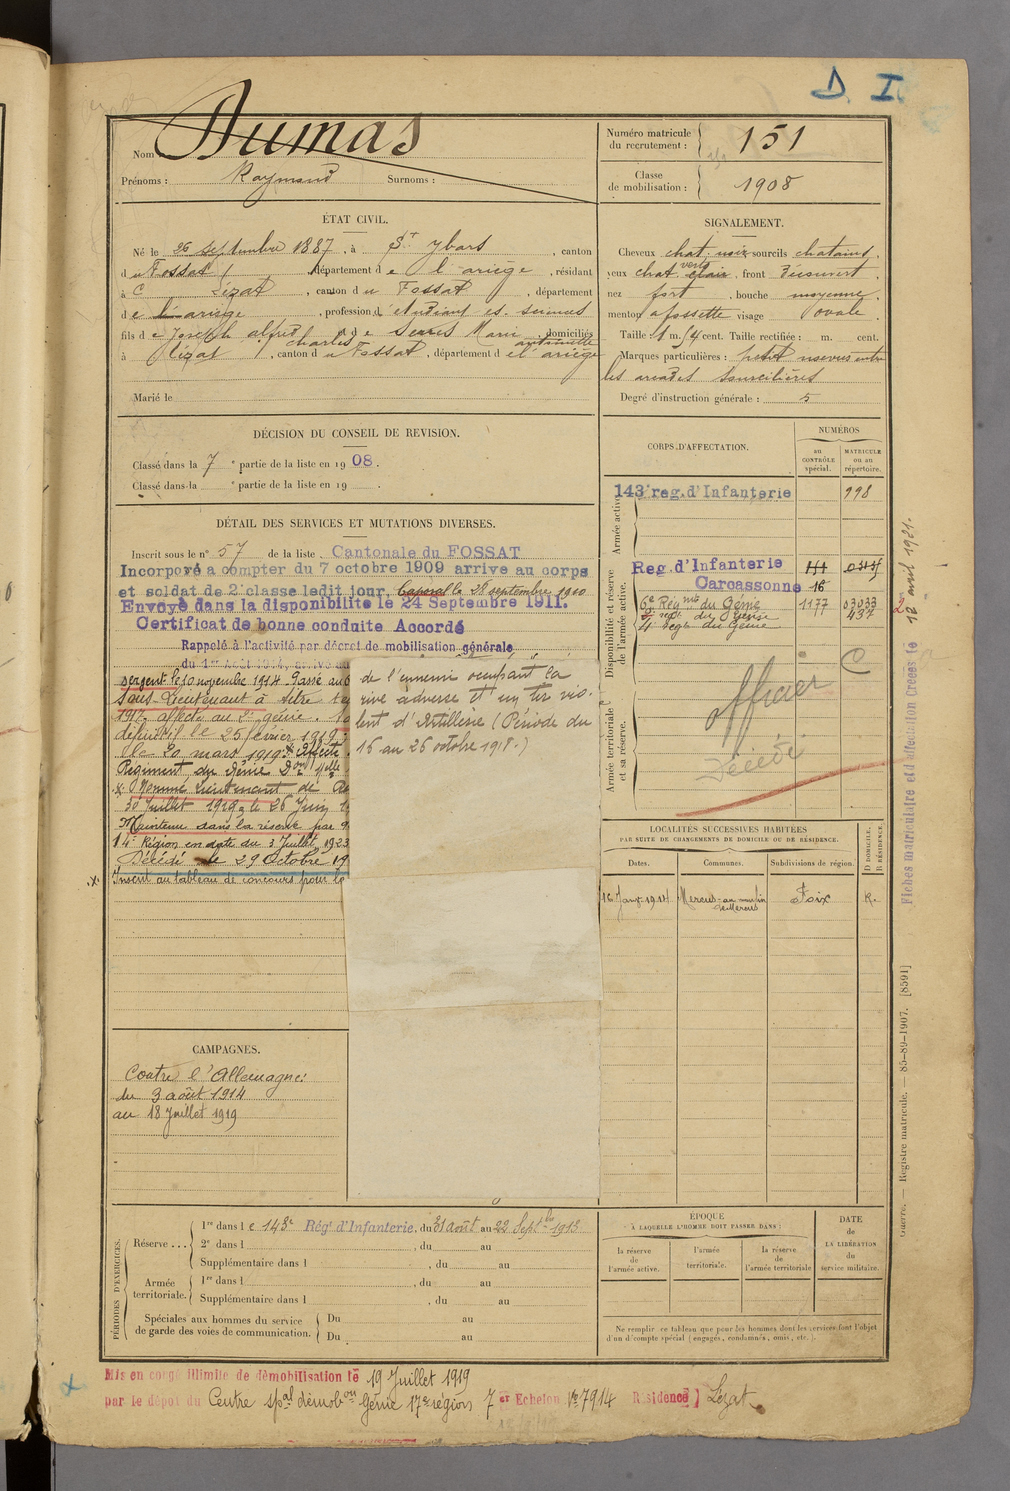 D. I.
Nom Dumas
Prénoms : Raymond Surnoms :
Numéro matricule du recrutement : 151
Classe de mobilisation : 1908
ÉTAT CIVIL.
Né le 26 septembre 1887, à St Ybars, canton
du Fossat, département de l'ariège, résidant
à Lézat, canton du Fossat, département
de l'ariège, profession d'étudiant es. sciences
fils de Joseph alfred Charles et de Marie antoinette domiciliés
à Lézat, canton du Fossat, département de l'ariège
Marié le
SIGNALEMENT.
Cheveux chat. noir sourcils chatains,
yeux chat clair verts, front Découvert,
nez fort, bouche moyenne,
menton a fossette visage ovale.
Taille : 1 m. cent. Taille rectifiée : m. cent.
Marques particulières : petit entre
les arcades sourcilières
Degré d'instruction générale : 5
DÉCISION DU CONSEIL DE REVISION.
Classé dans la 7e partie de la liste en 1908.
Classé dans la e partie de la liste en 19 .
DÉTAIL DES SERVICES ET MUTATIONS DIVERSES.
Inscrit sous le n° 57 de la liste Cantonale du FOSSAT
Incorporé a compter du 7 octobre 1909 arrive au corps
et soldat de 2e classe ledit jour, Caporal le 28 septembre 1910
Envoyé dans la disponibilite le 24 Septembre 1911.
Certificat de bonne conduite Accordé
Rappelé à l'activité par décret de mobilisation générale
du 1er Août 1914, arrivé au
sergent le 10 novembre 1914 Passé au 6
Sous Lieutenant à titre
1917 affecté au 2e génie.
le 25 février 1919
le 20 mars 1919 Affecté
Régiment du Génie
x Nommé Lieutenant de
30 Juillet 1919 le 26 Juin
Maintenu dans la réserve par
14e Région en date du 3 Juillet 1923
Décédé le 29 Octobre 19
.x. Inscrit au tableau de concours pour la
de l'ennemi occupant la
rive adverse et un tir vio-
lent d'Artillerie (Période du
16 au 26 octobre 1918.)
CORPS D'AFFECTATION.
NUMÉROS
au CONTRÔLE spécial.
MATRICULE ou au répertoire.
Armée active.
143e reg. d'Infanterie 998
Disponibilité et réserve de l'armée active.
Reg. d'Infanterie
Carcassonne 16
6e Régnt du Génie 1177 03033
2e regt du Génie 437
4e regt du Génie
Armée territoriale et sa réserve.
officier C
Décédé
LOCALITÉS SUCCESSIVES HABITÉES
PAR SUITE DE CHANGEMENTS DE DOMICILE OU DE RÉSIDENCE.
Dates. Communes. Subdivisions de région. D DOMICILE. R RÉSIDENCE.
16 Janv. 1914 Mercus - au moulin de Mercus Foix R.
Fiches matriculaire et d'affectation Créées le 12 avril 1921.
Guerre. — Registre matricule. — 85-89-1907. [8591]
CAMPAGNES.
Contre l'Allemagne :
du 3 août 1914
au 18 Juillet 1919
PÉRIODES D'EXERCICES.
Réserve ... 1re dans le 143e Régt d'Infanterie, du 31 août au 22 Septbre 1913
2e dans l , du au
Supplémentaire dans l , du au
Armée territoriale. 1re dans l , du au
Supplémentaire dans l , du au
Spéciales aux hommes du service de garde des voies de communication. Du au
Du au
ÉPOQUE
À LAQUELLE L'HOMME DOIT PASSER DANS :
la réserve de l'armée active.
l'armée territoriale.
la réserve de l'armée territoriale
DATE de LA LIBÉRATION du service militaire.
Ne remplir ce tableau que pour les hommes dont les services font l'objet
d'un décompte spécial (engagés, condamnés, omis, etc.).
Mis en congé illimite de démobilisation le 19 Juillet 1919
par le dépot du Centre spal démobon Génie 17e région 7er Echelon No 7914 Résidence) Lezat.